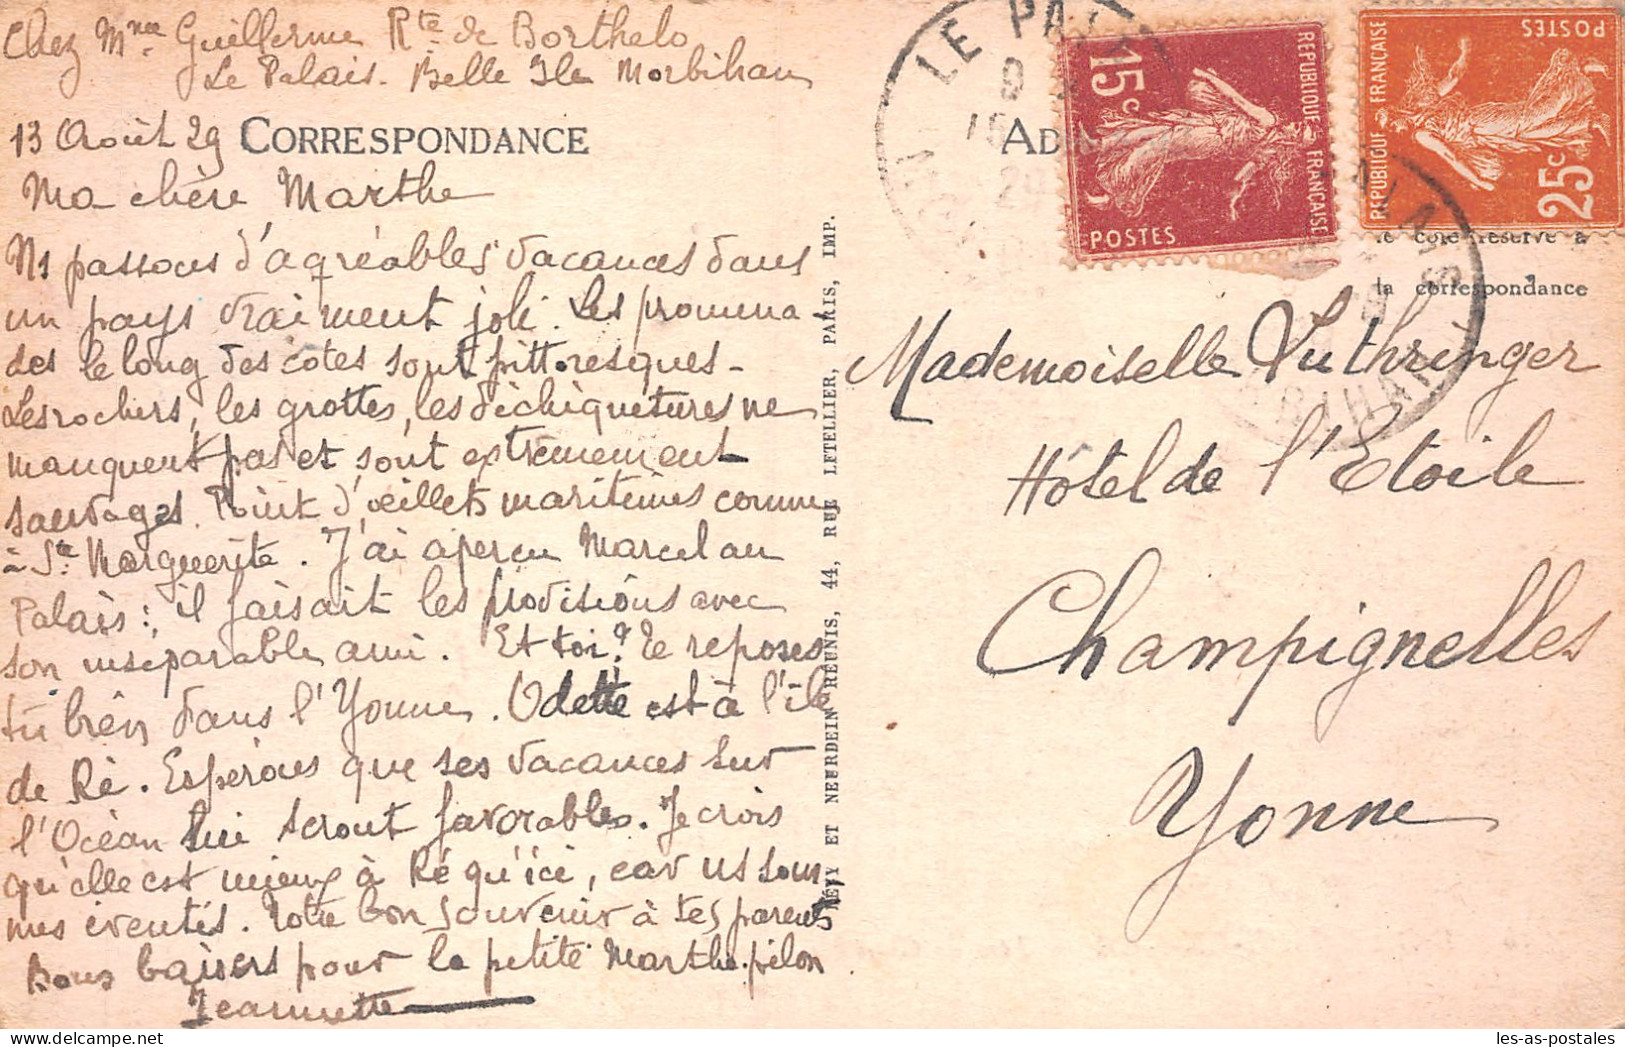 Chez Mme Guellerme Rte de Borthelo
Le Palais. Belle Ile Morbihan
13 Août 29 CORRESPONDANCE
Ma chère Marthe
Ns passons d'agréables vacances dans
un pays vraiment joli. Les promena-
des le long des côtes sont pittoresques-
Les rochers, les grottes, les déchiquetures ne
manquent pas et sont extrêmement
sauvages. Point d'oeillets maritimes comme
à Ste Marguerite. J'ai aperçu Marcel au
Palais : il faisait les provisions avec
son inséparable ami. Et toi ? Te reposes
tu bien dans l'Yonne. Odette est à l'île
de Ré. Espérons que ses vacances sur
l'Océan lui seront favorables. Je crois
qu'elle est mieux à Ré qu'ici, car ns som-
mes éventés. Notre bon souvenir à tes parents
Bons baisers pour la petite Marthe.
Jeannette
LÉVY ET NEURDEIN RÉUNIS, 44, RUE LETELLIER, PARIS, IMP.
LE PALAIS
15c
REPUBLIQUE FRANÇAISE
POSTES
25c
REPUBLIQUE FRANÇAISE
POSTES
AD
le côté réservé à
la correspondance
Mademoiselle Luthringer
Hôtel de l'Etoile
Champignelles
Yonne
les-as-postales